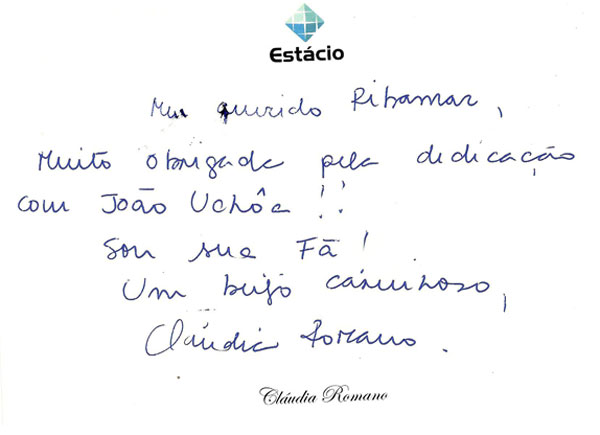 Estácio
Meu querido Ribamar,
Muito obrigada pela dedicação
com João Uchôa!!
Sou sua Fã!
Um beijo carinhoso,
Cláudia Romano.
Cláudia Romano